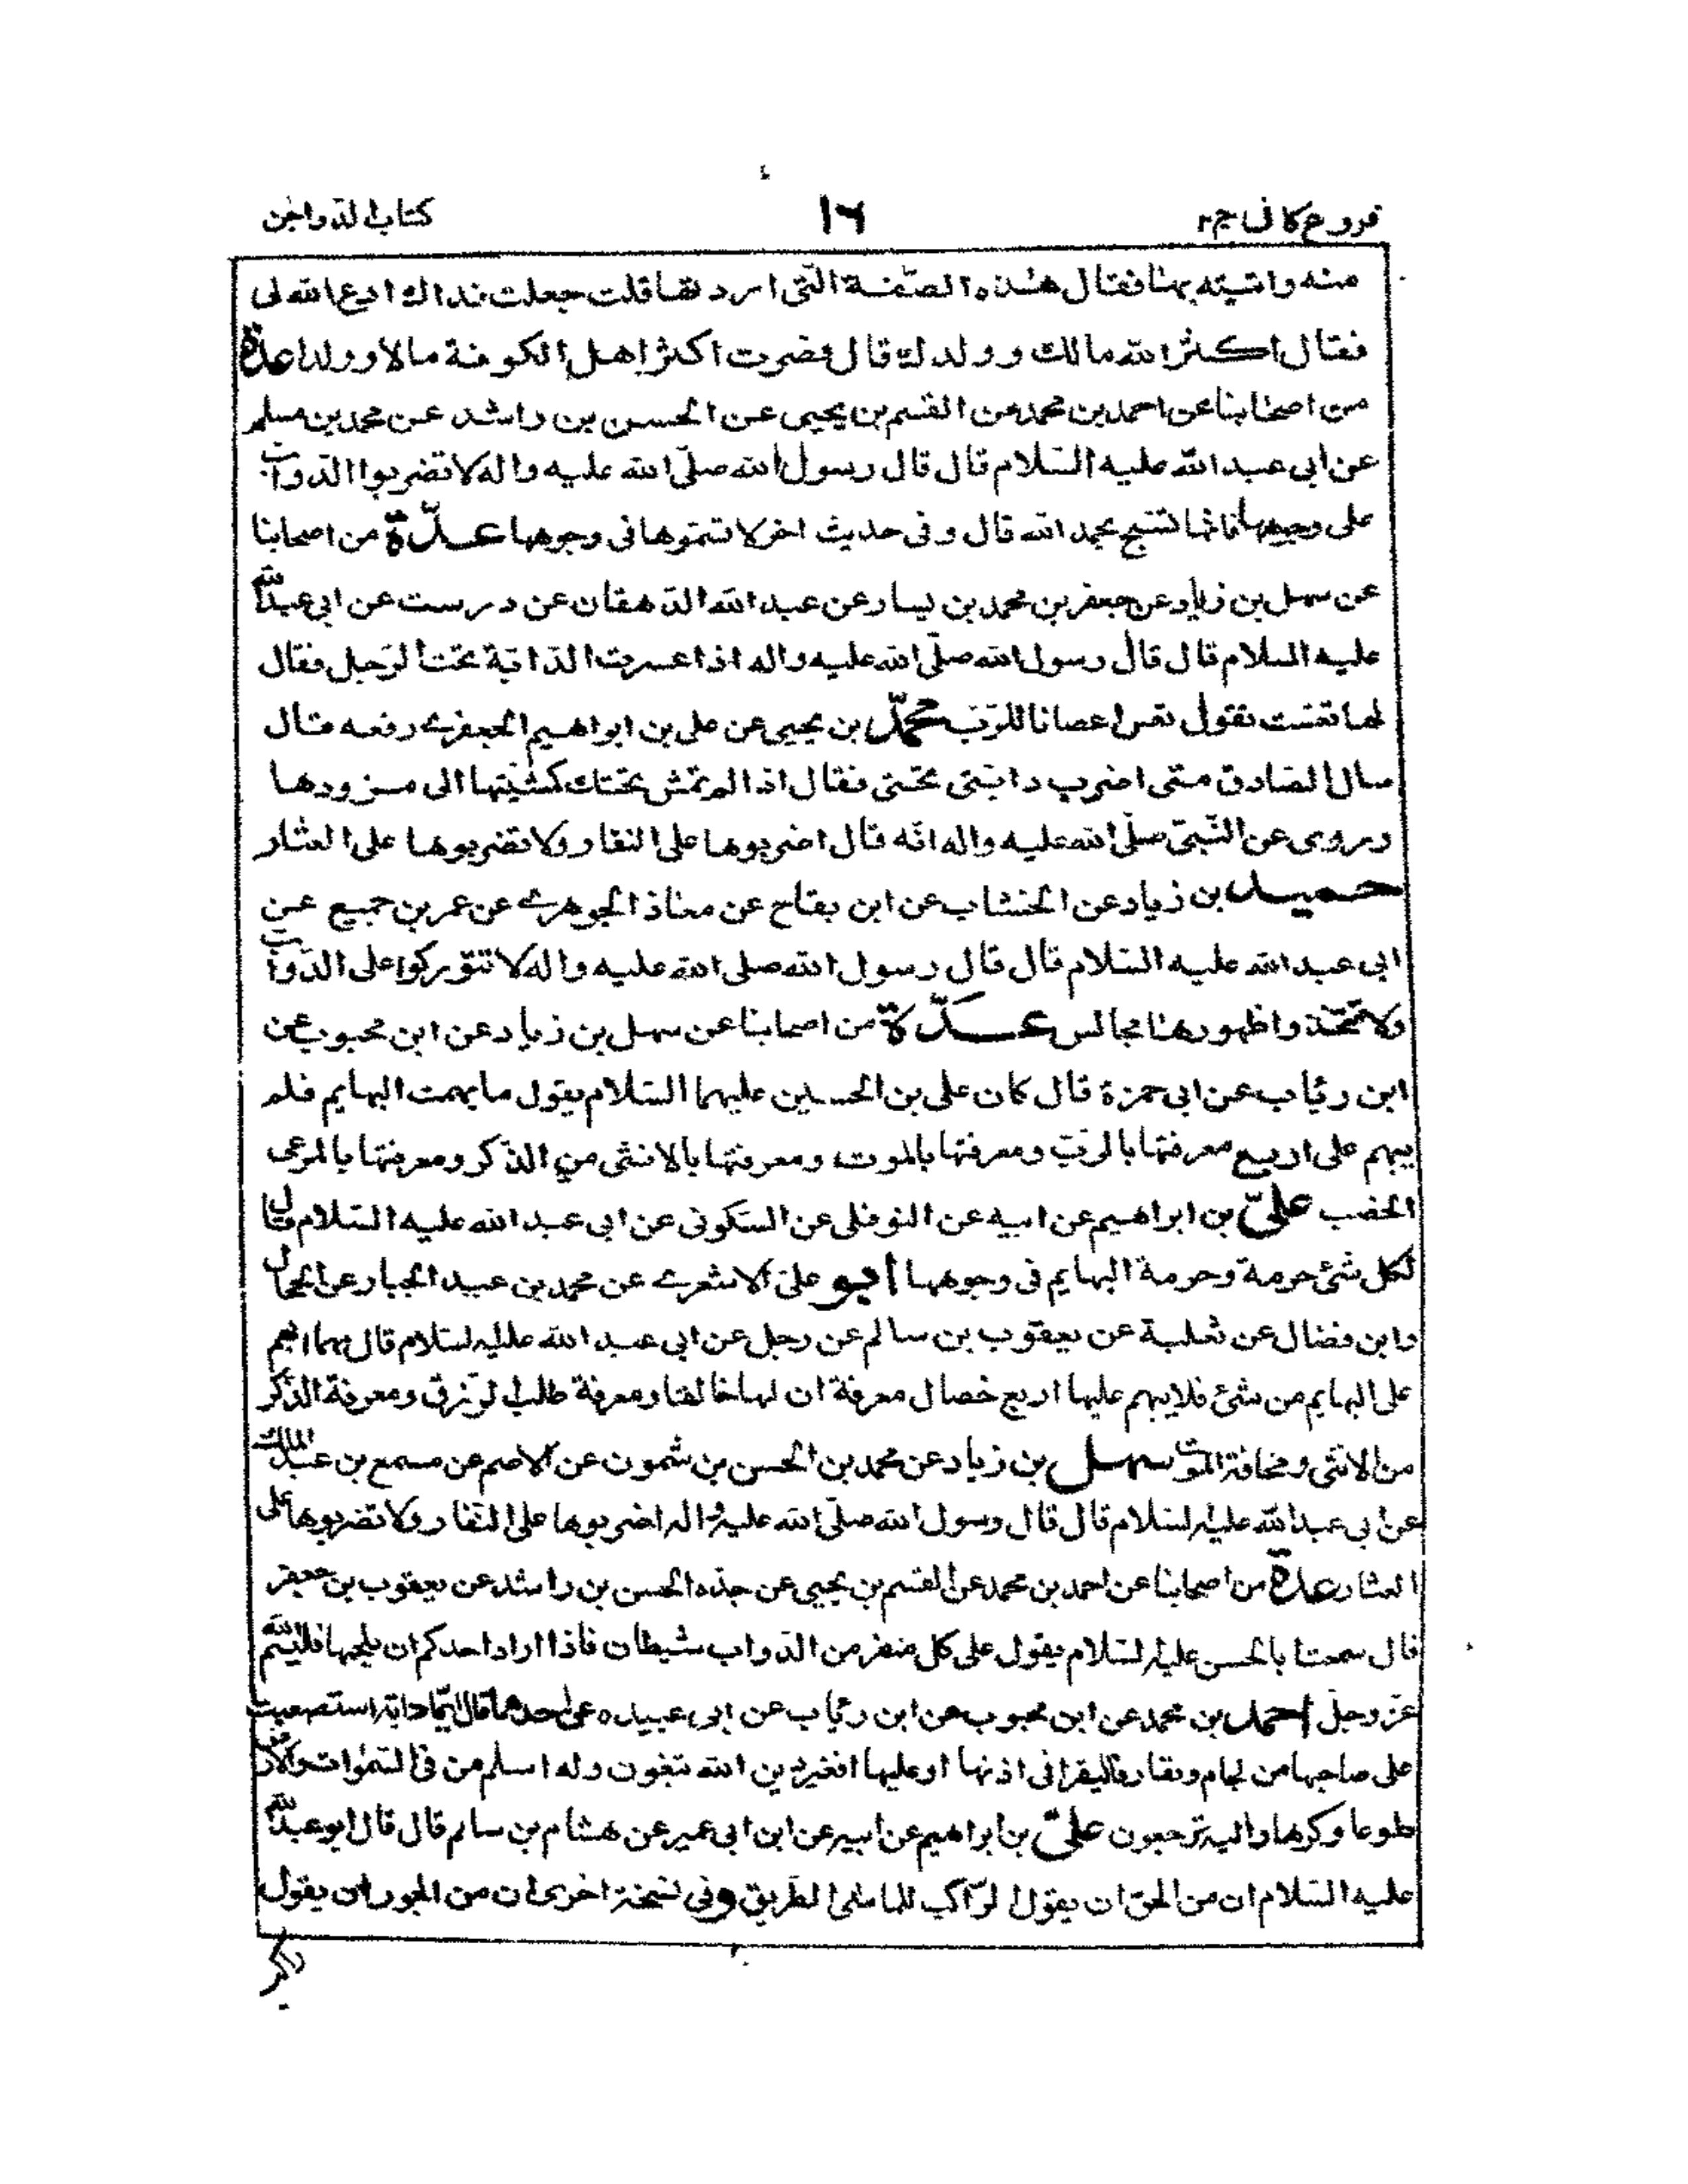 فروع كافى ج٢
١٦
كتاب الدواجن
منه واتيته بها فقال هذه الصّفة الّتى اردتها قلت جعلت فداك ادع الله لى
فقال اكثر الله مالك وولدك قال فصرت اكثر اهل الكوفة مالا وولدا عدّة
من اصحابنا عن احمد بن محمد عن القسم بن يحيى عن الحسن بن راشد عن محمد بن مسلم
عن ابى عبد الله عليه السّلام قال قال رسول الله صلّى الله عليه واله لا تضربوا الدّوابّ
على وجوهها فانها تسبّح بحمد الله قال وفى حديث اخر لا تسموها فى وجوهها عدّة من اصحابنا
عن سهل بن زياد عن جعفر بن محمد بن يسار عن عبد الله الدّهقان عن درست عن ابى عبد الله
عليه السلام قال قال رسول الله صلّى الله عليه واله اذا عسرت الدّابّة تحت الرّجل فقال
لها تعست تقول تعس اعصانا للرّبّ محمّد بن يحيى عن على بن ابراهيم الجعفرى رفعه قال
سال الصّادق متى اضرب دابّتى تحتى فقال اذا لم تمش تحتك كمشيتها الى مزودها
وروى عن النّبىّ صلّى الله عليه واله انّه قال اضربوها على النفار ولا تضربوها على العثار
حميد بن زياد عن الخشاب عن ابن بقاح عن معاذ الجوهرى عن عمر بن جميع عن
ابى عبد الله عليه السّلام قال قال رسول الله صلى الله عليه واله لا تتوركوا على الدّوابّ
ولا تتّخذوا ظهورها مجالس عدّة من اصحابنا عن سهل بن زياد عن ابن محبوب عن
ابن رئاب عن ابى حمزة قال كان على بن الحسين عليهما السّلام يقول ما بهمت البهايم فلم
يبهم على اربع معرفتها بالرّبّ ومعرفتها بالموت ومعرفتها بالانثى من الذّكر ومعرفتها بالمرعى
الخضب علىّ بن ابراهيم عن ابيه عن النوفلى عن السّكونى عن ابى عبد الله عليه السّلام قال
لكل شئ حرمة وحرمة البهايم فى وجوهها ابو على الاشعرى عن محمد بن عبد الجبار عن الحجال
وابن فضال عن ثعلبة عن يعقوب بن سالم عن رجل عن ابى عبد الله عليه السّلام قال مهما ابهم
على البهايم من شئ فلا يبهم عليها اربع خصال معرفة ان لها خالقا ومعرفة طلب الرّزق ومعرفة الذّكر
من الانثى ومخافة الموت سهل بن زياد عن محمد بن الحسن بن شمون عن الاصم عن مسمع بن عبد الملك
عن ابى عبد الله عليه السّلام قال قال رسول الله صلّى الله عليه واله اضربوها على النّفار ولا تضربوها على
العثار عدّة من اصحابنا عن احمد بن محمد عن القسم بن يحيى عن جدّه الحسن بن راشد عن يعقوب بن جعفر
قال سمعت ابا الحسن عليه السّلام يقول على كل منخر من الدّواب شيطان فاذا اراد احدكم ان يلجمها فليسمّ الله
عزّ وجلّ احمد بن محمد عن ابن محبوب عن ابن رئاب عن ابى عبيده عن احدهما قال ايّما دابة استصعبت
على صاحبها من لجام ونفار فليقرا فى اذنها او عليها افغير دين الله تبغون وله اسلم من فى السّموات والارض
طوعا وكرها واليه ترجعون علىّ بن ابراهيم عن ابيه عن ابن ابى عمير عن هشام بن سالم قال قال ابو عبد الله
عليه السّلام ان من الحق ان يقول الرّاكب للماشى الطّريق وفى نسخة اخرى ان من الجور ان يقول